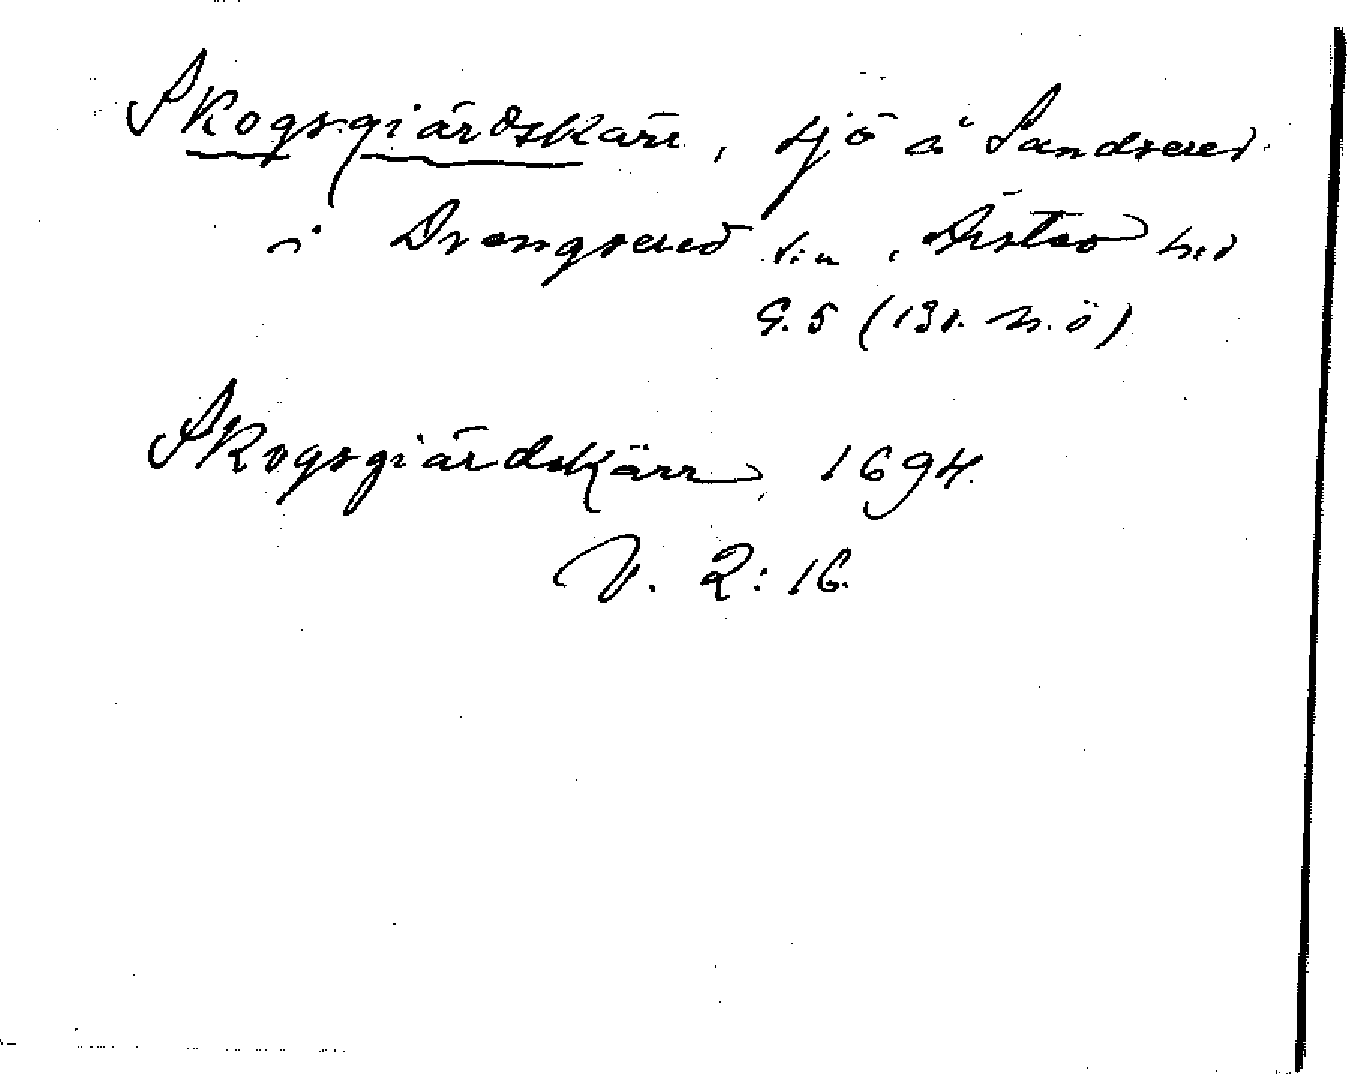 Skogsgiärdskärr, sjö å Sandsered
i Drengsered s:n, Årstad hd
G. 5 (131. N. ö)
Skogsgiärdskärr, 1694.
N. 2:16.